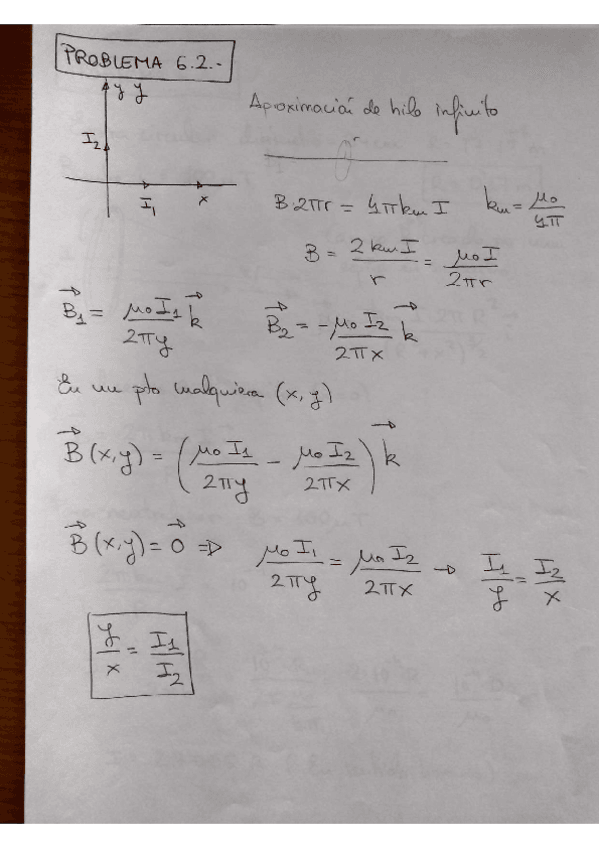 PROBLEMA 6.2.-
y y
Aproximación de hilo infinito
I₂
r
I₁ x
B·2πr = 4πkₘI kₘ = μ₀/4π
B = 2kₘI/r = μ₀I/2πr
B⃗₁ = μ₀I₁/2πy k⃗ B⃗₂ = -μ₀I₂/2πx k⃗
En un pto cualquiera (x,y)
B⃗(x,y) = (μ₀I₁/2πy - μ₀I₂/2πx) k⃗
B⃗(x,y) = 0⃗ ⇒ μ₀I₁/2πy = μ₀I₂/2πx → I₁/y = I₂/x
y/x = I₁/I₂